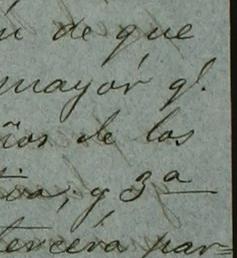 de que
mayor q!.
ños de los
y 3ª
tercera par=